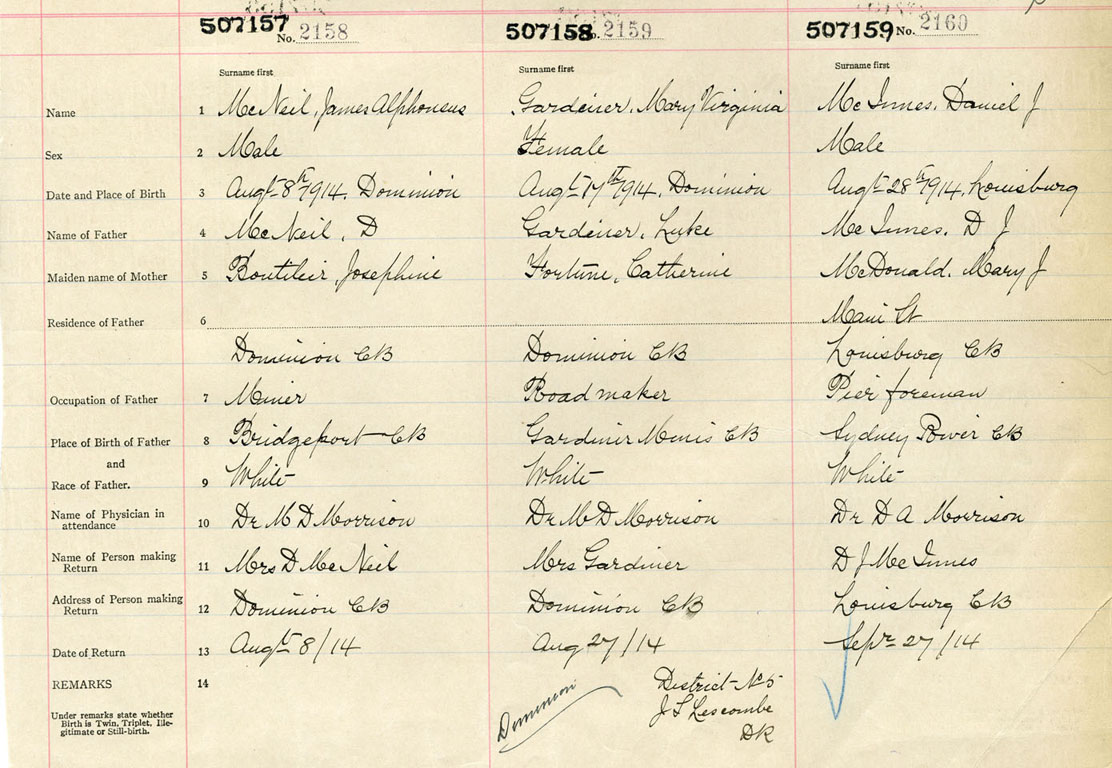 507157 No. 2158 507158 No. 2159 507159 No. 2160
Surname first Surname first Surname first
Name 1 McNeil, James Alphonsus Gardiner, Mary Virginia McInnes, Daniel J
Sex 2 Male Female Male
Date and Place of Birth 3 Augt 8th 1914, Dominion Augt 17th 1914, Dominion Augt 28th 1914, Louisburg
Name of Father 4 McNeil, D Gardiner, Luke McInnes, D J
Maiden name of Mother 5 Boutilier, Josephine Fortune, Catherine McDonald, Mary J
Residence of Father 6 Main St
Dominion CB Dominion CB Louisburg CB
Occupation of Father 7 Miner Road maker Pier foreman
Place of Birth of Father 8 Bridgeport CB Gardiner Mines CB Sydney River CB
and
Race of Father. 9 White White White
Name of Physician in attendance 10 Dr M D Morrison Dr M D Morrison Dr D A Morrison
Name of Person making Return 11 Mrs D McNeil Mrs Gardiner D J McInnes
Address of Person making Return 12 Dominion CB Dominion CB Louisburg CB
Date of Return 13 Augt 8/14 Aug 27/14 Sepr 27/14
REMARKS 14 District No 5
Under remarks state whether
Birth is Twin, Triplet, Ille-
gitimate or Still-birth.
Dominion
J S Lescombe
DR